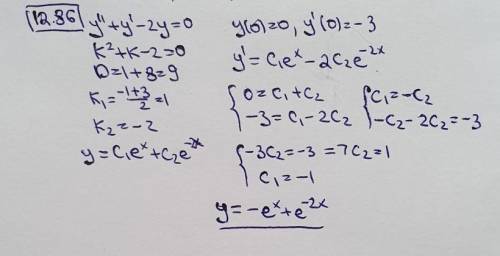 12.86
y''+y'-2y=0
k²+k-2=0
D=1+8=9
k₁=(-1+3)/2=1
k₂=-2
y=C₁eˣ+C₂e⁻²ˣ
y(0)=0, y'(0)=-3
y'=C₁eˣ-2C₂e⁻²ˣ
{0=C₁+C₂ {C₁=-C₂
-3=C₁-2C₂ -C₂-2C₂=-3
{-3C₂=-3 =7C₂=1
C₁=-1
y=-eˣ+e⁻²ˣ